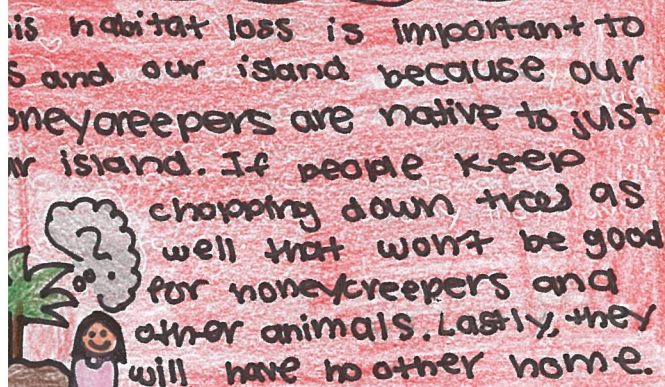 is habitat loss is important to
s and our island because our
oneycreepers are native to just
ur island. If people keep
chopping down trees as
well that won't be good
?
for honeycreepers and
other animals. Lastly, they
will have no other home.